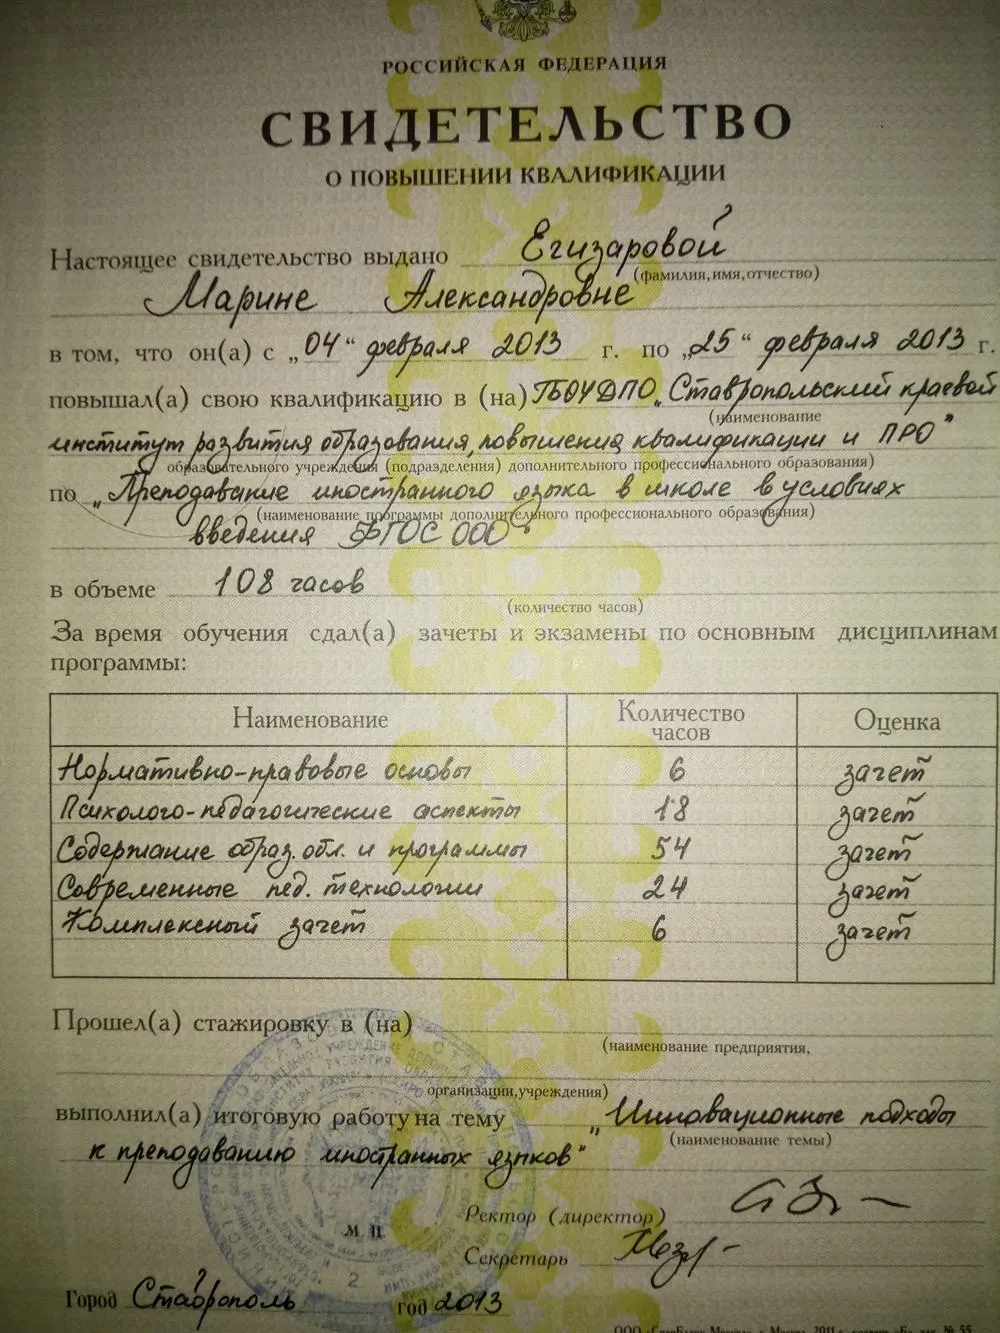 РОССИЙСКАЯ ФЕДЕРАЦИЯ
СВИДЕТЕЛЬСТВО
О ПОВЫШЕНИИ КВАЛИФИКАЦИИ
Настоящее свидетельство выдано Егизаровой
(фамилия, имя, отчество)
Марине Александровне
в том, что он(а) с „04“ февраля 2013 г. по „25“ февраля 2013 г.
повышал(а) свою квалификацию в (на) ГБОУДПО „Ставропольский краевой
(наименование
институт развития образования, повышения квалификации и ПРО"
образовательного учреждения (подразделения) дополнительного профессионального образования)
по „Преподавание иностранного языка в школе в условиях
(наименование программы дополнительного профессионального образования)
введения ФГОС ООО"
в объеме 108 часов
(количество часов)
За время обучения сдал(а) зачеты и экзамены по основным дисциплинам
программы:
Наименование Количество часов Оценка
Нормативно-правовые основы 6 зачет
Психолого-педагогические аспекты 18 зачет
Содержание образ. обл. и программы 54 зачет
Современные пед. технологии 24 зачет
Комплексный зачет 6 зачет
Прошел(а) стажировку в (на)
(наименование предприятия,
организации, учреждения)
выполнил(а) итоговую работу на тему „Инновационные подходы
(наименование темы)
к преподаванию иностранных языков"
Ректор (директор)
М П
Секретарь
Город Ставрополь год 2013